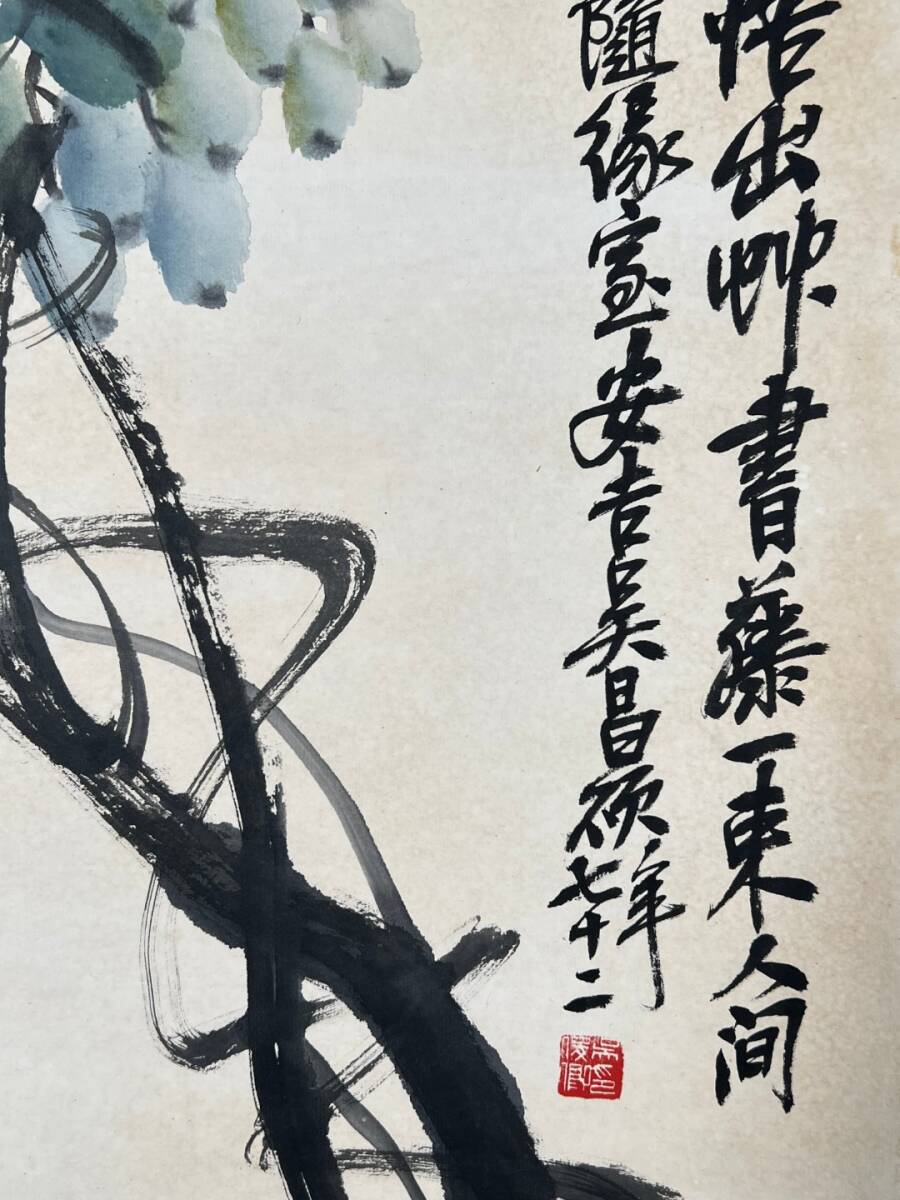 悟出艸書藤一束人間
隨緣室安吉吳昌碩年七十二
吳俊卿印